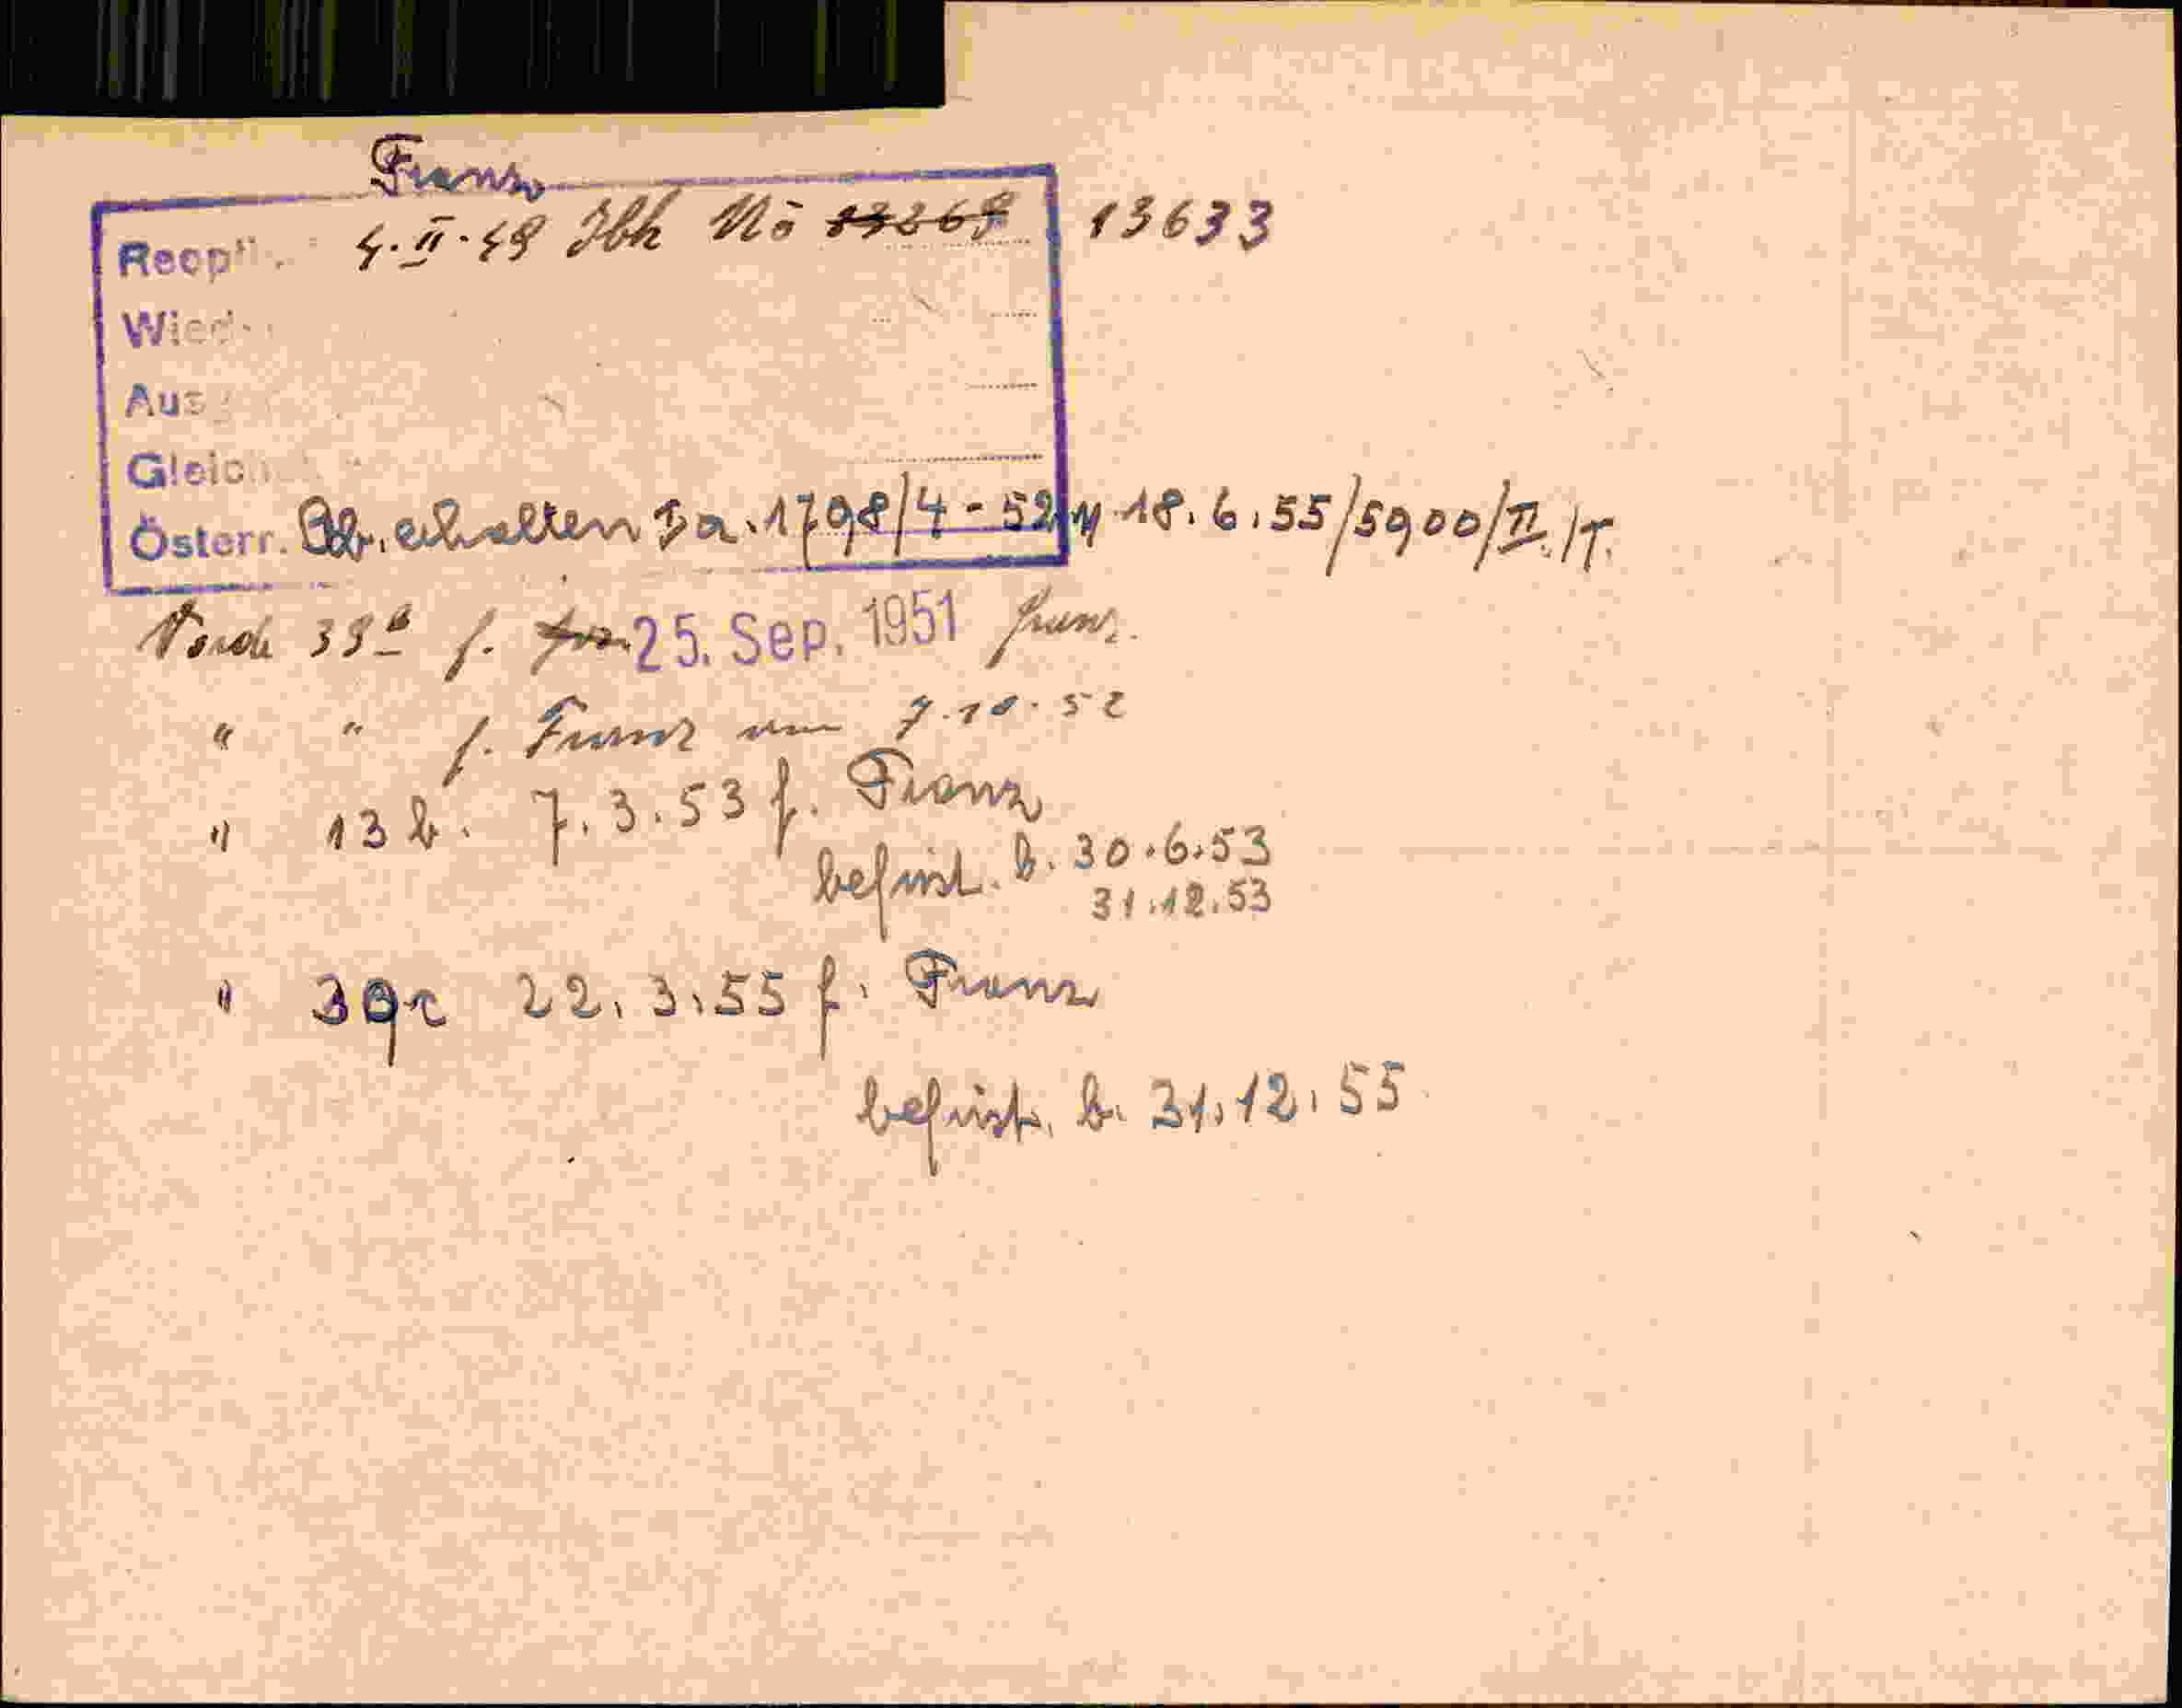 Franz
Recp 4.II.49 Jbh No 13267 13633
Wied
Aus
Gleic
Österr. Bb. erhalten Za. 1798/4-52 v. 18.6.55/5900/II./T.
Nach 39a f. 25. Sep. 1951 franz.
" " f. Franz vom 7.10.52
" 13b. 7.3.53 f. Franz
befrist. b. 30.6.53
31.12.53
" 39c 22.3.55 f. Franz
befrist. b. 31.12.55